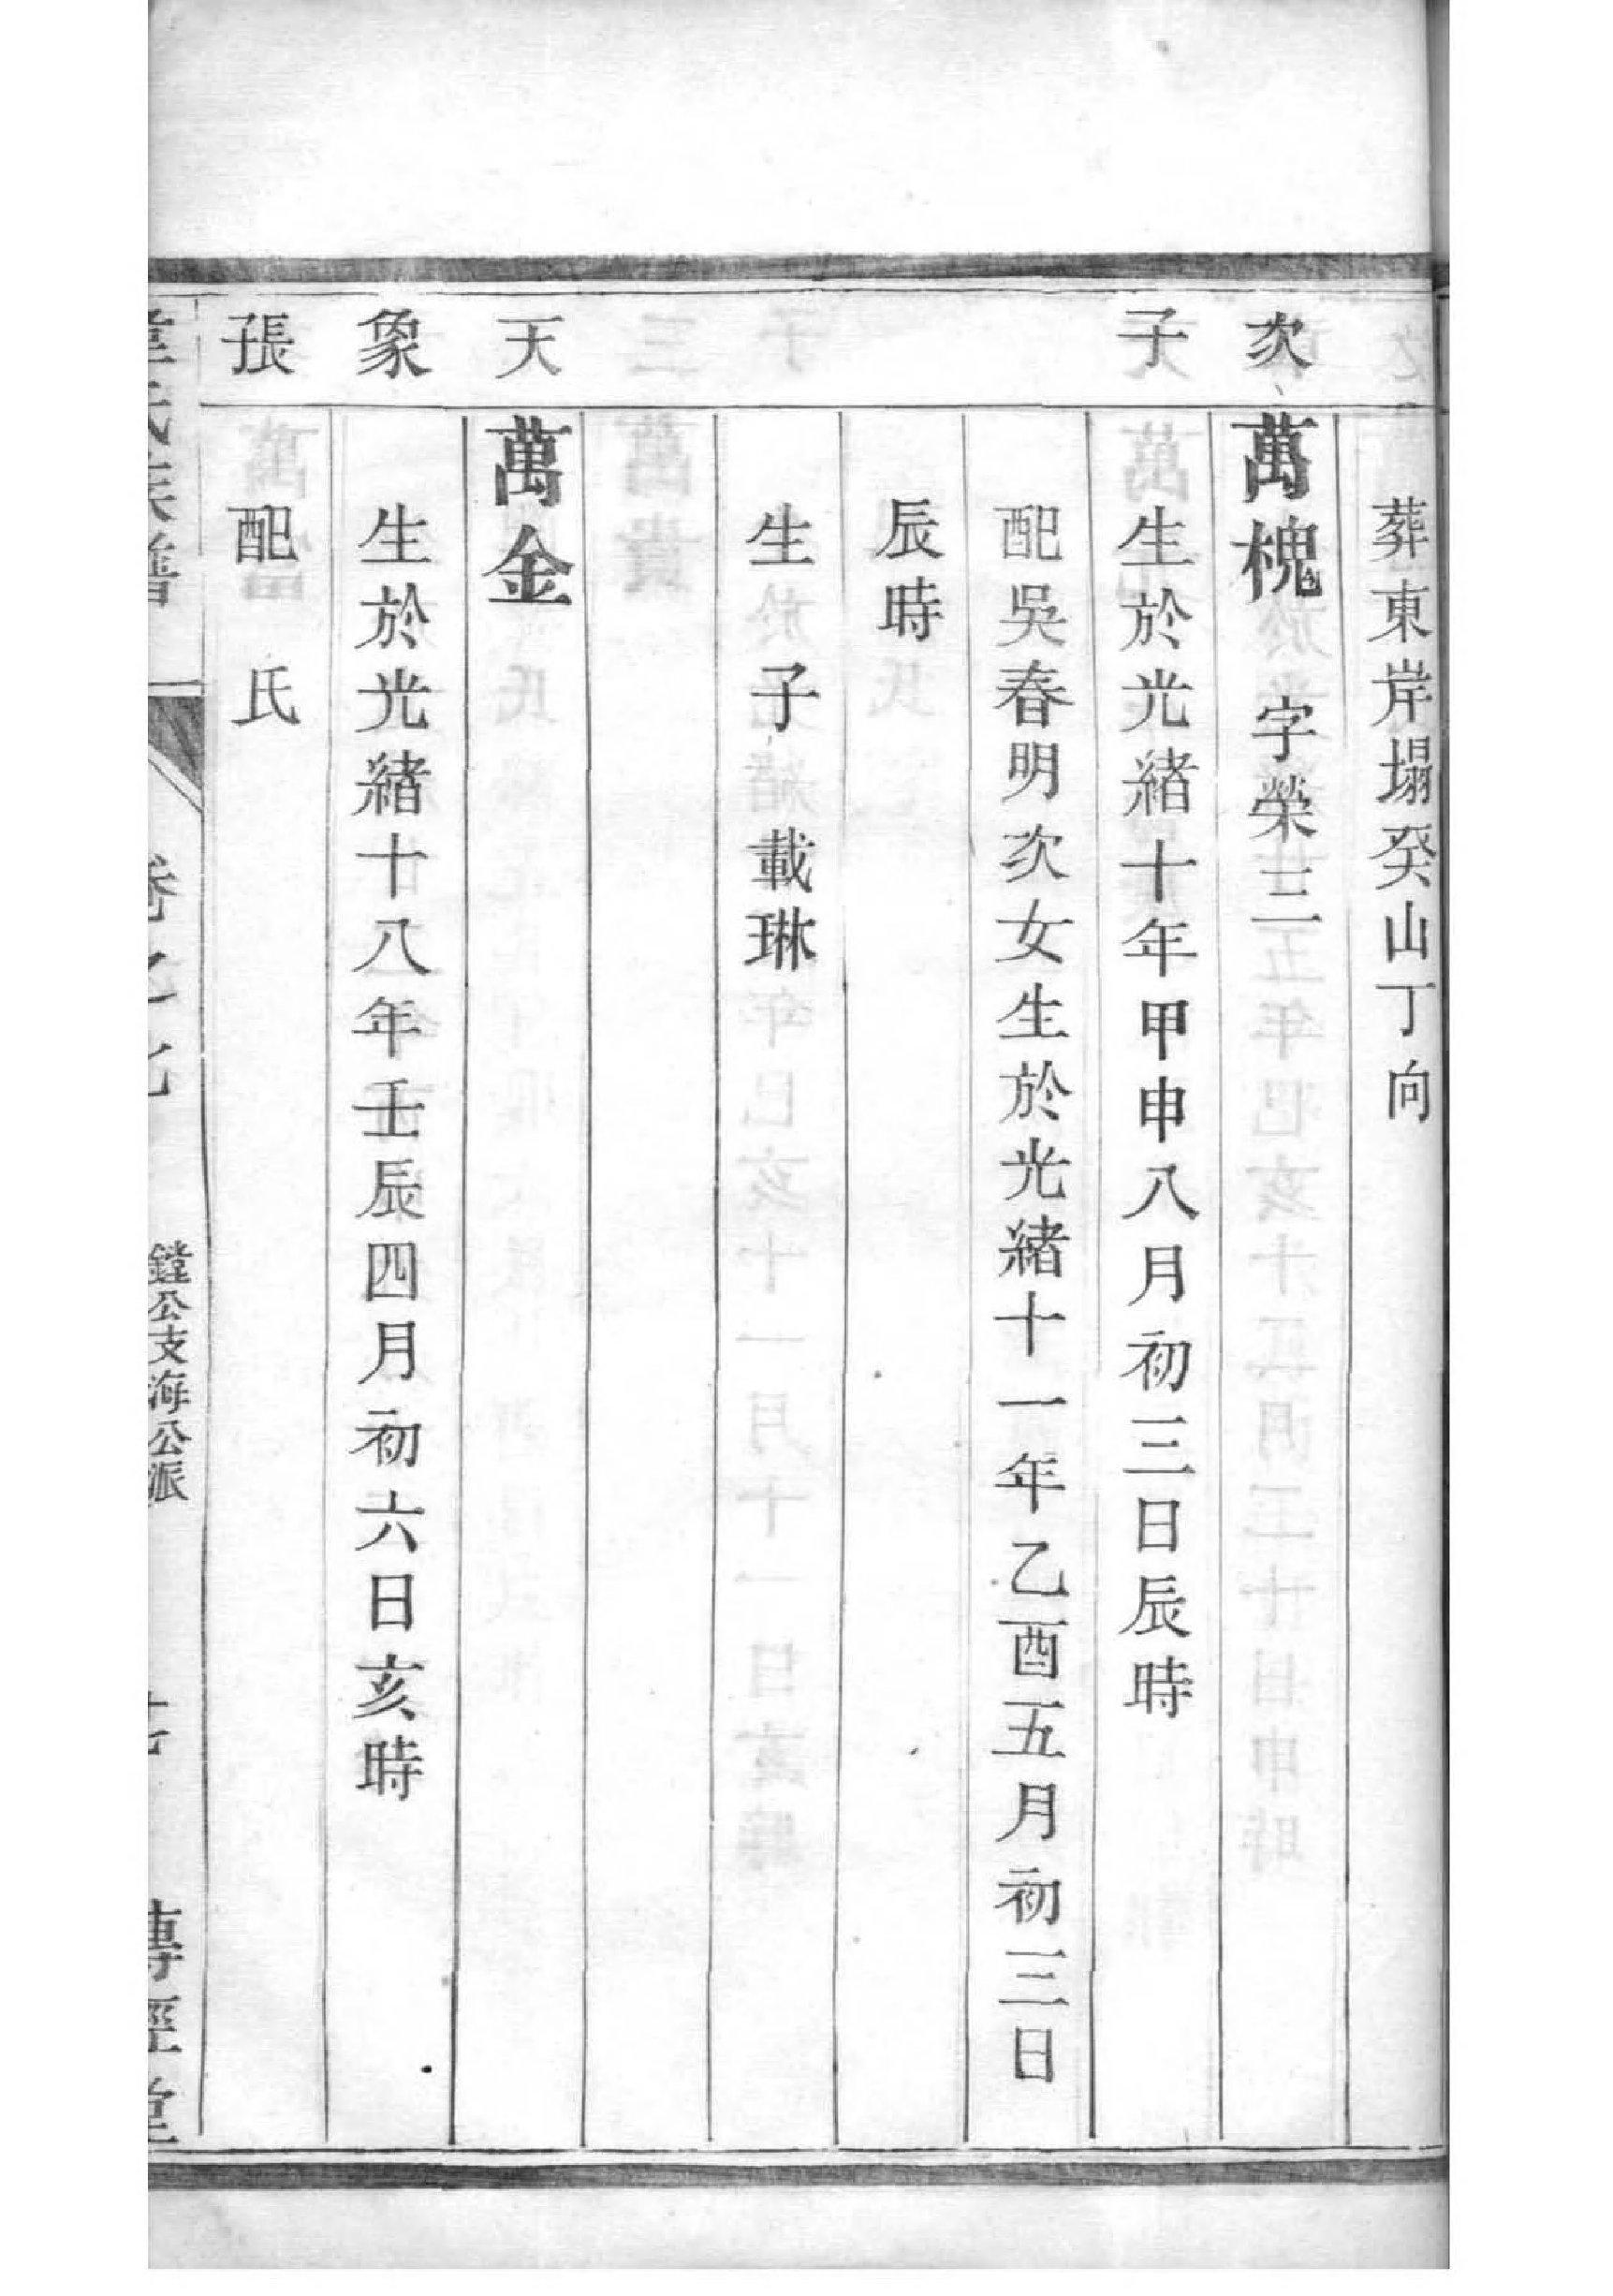 葬東岸塌癸山丁向
次
萬槐 字榮三
子
生於光緒十年甲申八月初三日辰時
配吳春明次女生於光緒十一年乙酉五月初三日
辰時
生 子 載琳
天
萬金
象
生於光緒十八年壬辰四月初六日亥時
張
配 氏
氏族譜
鏜公支海公派
傳經堂